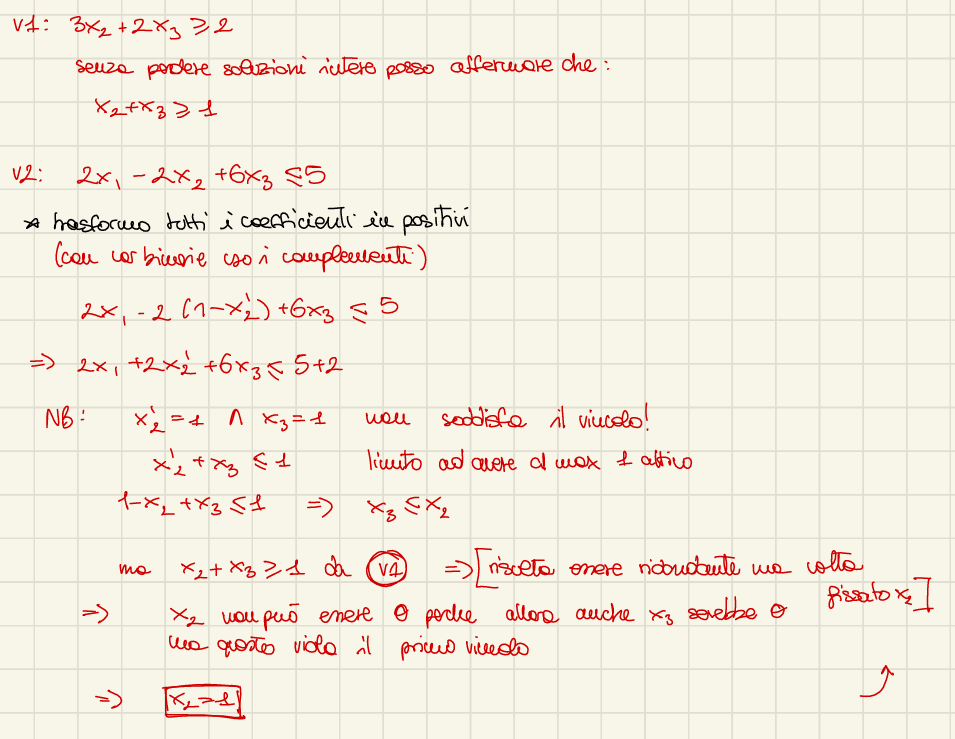 v1: 3x₂ + 2x₃ ⩾ 2
senza perdere soluzioni intere posso affermare che:
x₂+x₃ ⩾ 1
v2: 2x₁ - 2x₂ + 6x₃ ⩽ 5
* trasformo tutti i coefficienti in positivi
(con var binarie uso i complementi)
2x₁ - 2 (1-x₂') + 6x₃ ⩽ 5
=> 2x₁ + 2x₂' + 6x₃ ⩽ 5+2
NB: x₂' = 1 ∧ x₃ = 1 non soddisfa il vincolo!
x₂' + x₃ ⩽ 1 limito ad avere al max 1 attivo
1-x₂ + x₃ ⩽ 1 => x₃ ⩽ x₂
ma x₂ + x₃ ⩾ 1 da v1 => [risulta essere ridondante una volta
fissato x₂]
=> x₂ non può essere 0 perche allora anche x₃ sarebbe 0
ma questo viola il primo vincolo
=> x₂=1